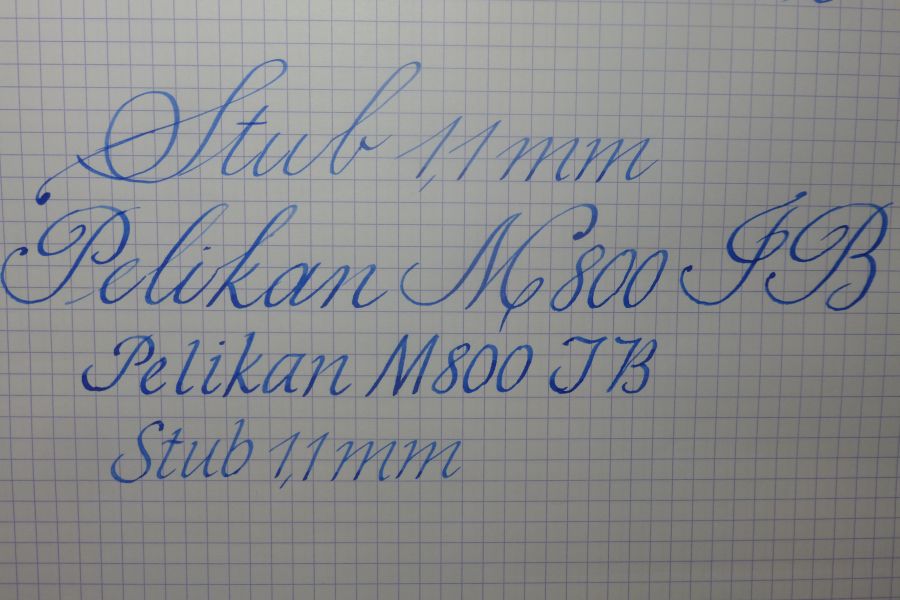 Stub 1,1 mm
Pelikan M800 IB
Pelikan M800 IB
Stub 1,1 mm